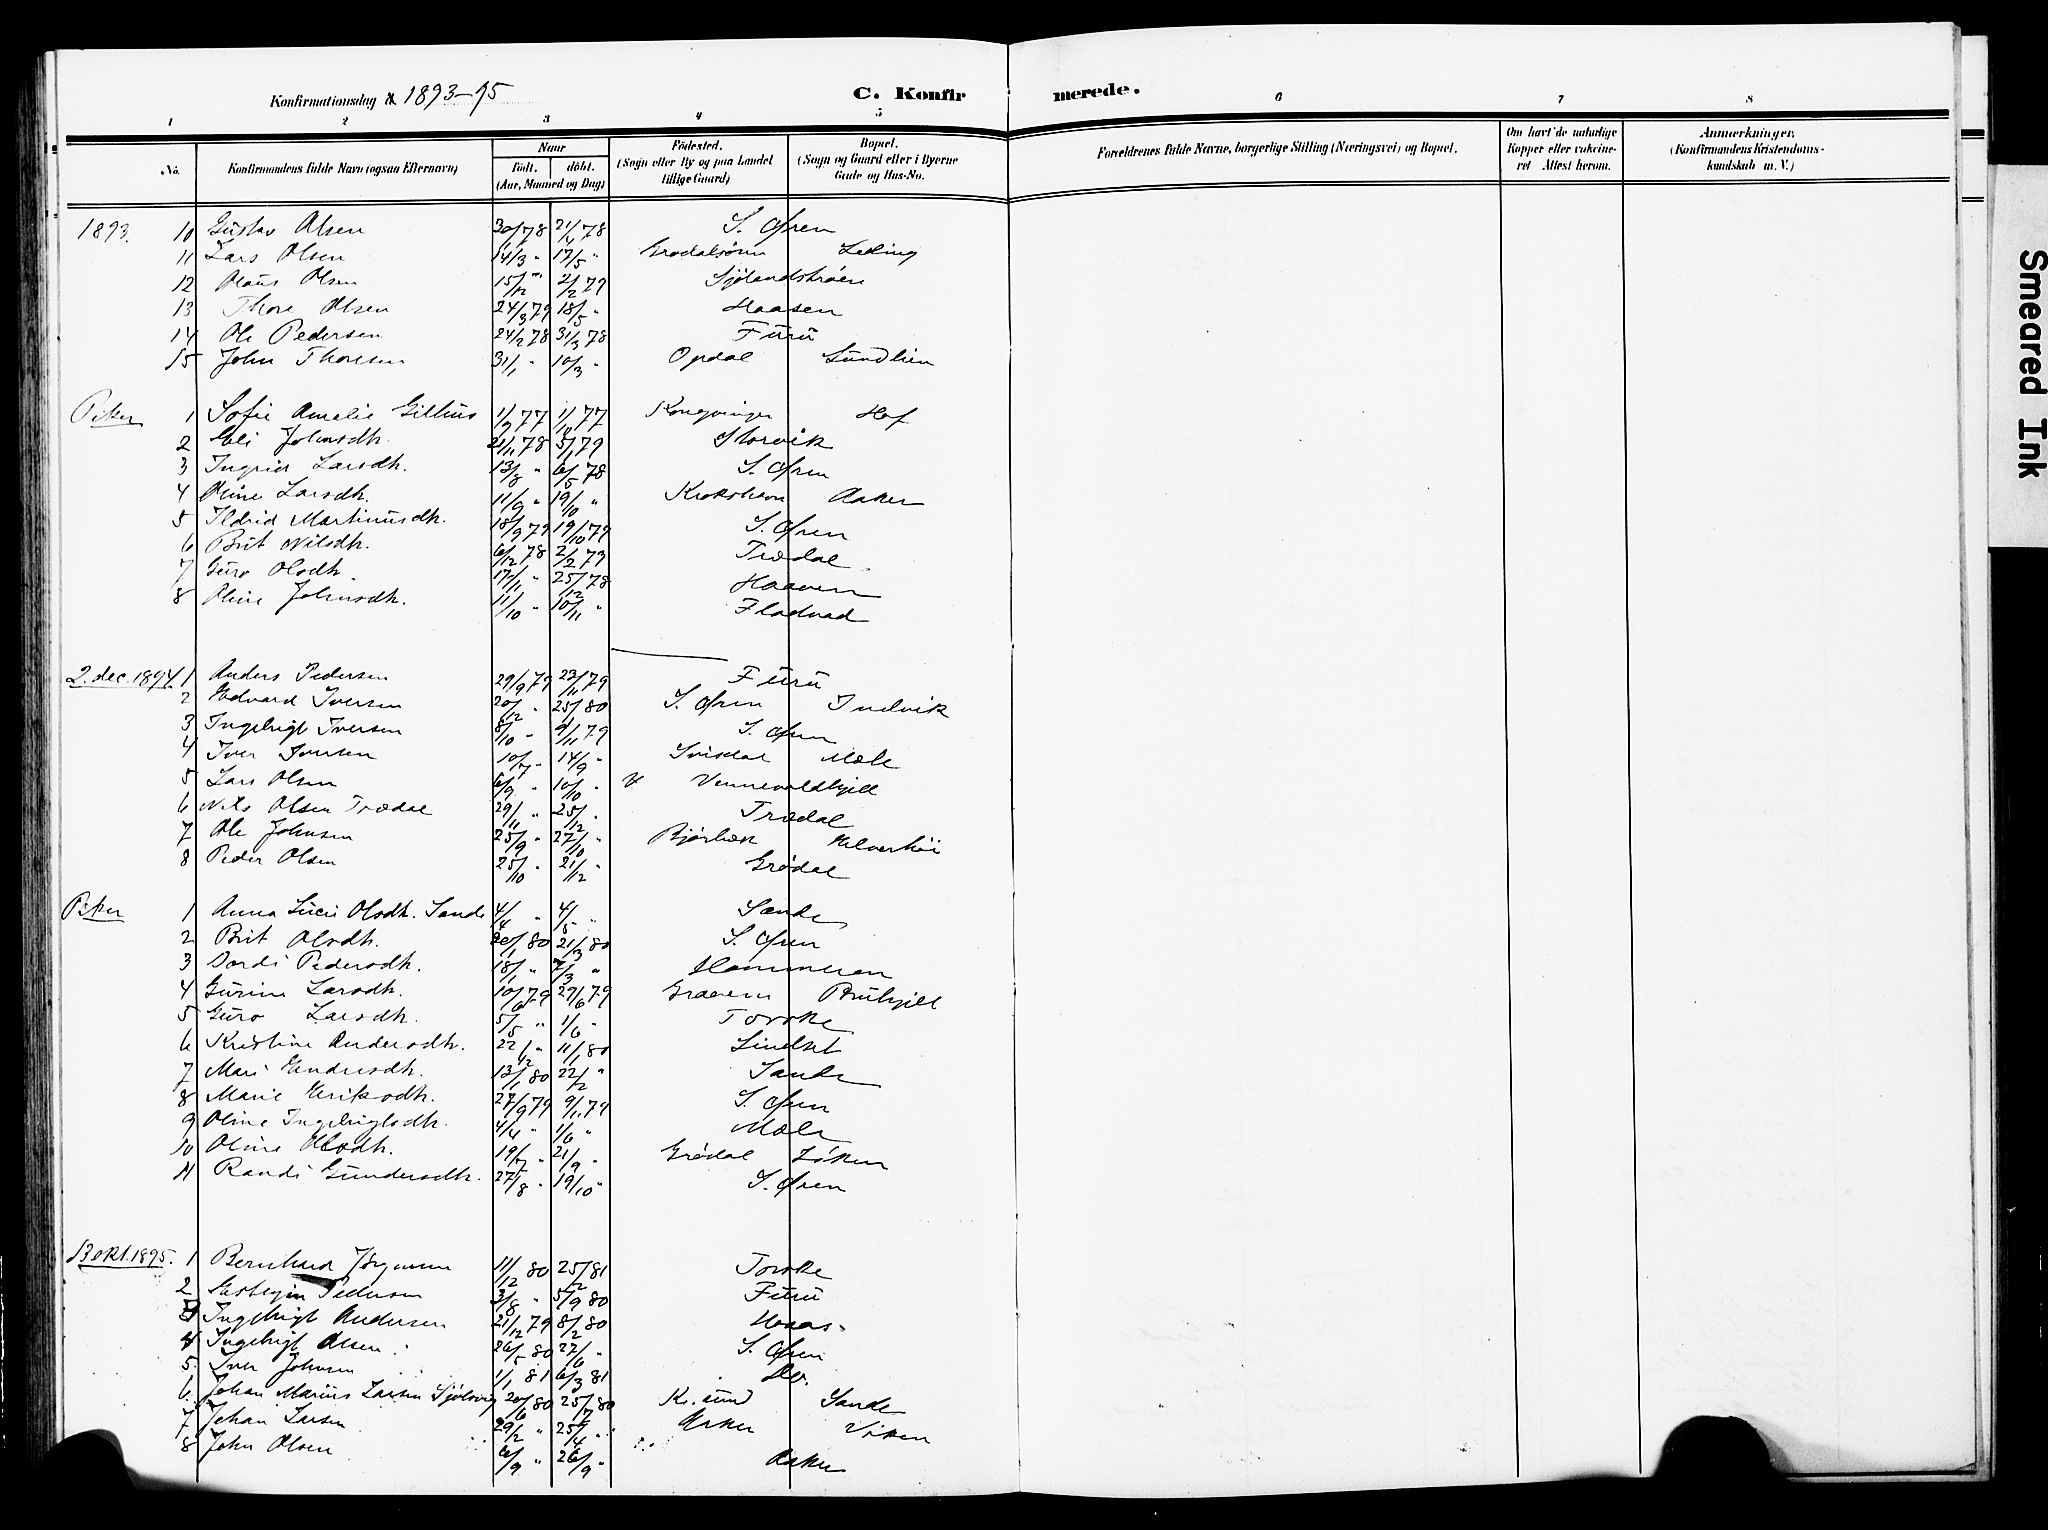 Konfirmationsdag d. 1893-95
C. Konfirmerede.
1 2 3 4 5 6 7 8
No.
Konfirmandens fulde Navn (ogsaa Efternavn)
Naar
født. døbt.
(Aar, Maaned og Dag)
Fødested.
(Sogn eller By og paa Landet
tillige Gaard)
Bopæl.
(Sogn og Gaard eller i Byerne
Gade og Hus-No.
Forældrenes fulde Navne, borgerlige Stilling (Næringsvei) og Bopæl.
Om havt de naturlige
Kopper eller vakcine-
ret Attest herom.
Anmerkninger.
(Konfirmandens Kristendoms-
kundskab m. V.)
1893. 10 Gustav Olsen 30/1 78 21/4 78 S. Øren
11 Lars Olsen 14/3 " 17/5 " Leking
12 Olaus Olsen 15/12 " 2/2 79
13 Thore Olsen 24/3 79 18/5 " Haasen
14 Ole Pedersen 24/2 78 31/3 78 Furu
15 John Thoresen 31/1 " 10/3 " Opdal Sundlien
Piker 1 Sofie Amelie 1/9 77 77 Kongvinger Hof
2 Eli Johnsdtr. 21/11 78 5/1 79 Storvik
3 Ingrid Larsdtr. 13/3 " 6/5 78 S. Øren
4 Oline Larsdtr. 11/9 " 19/10 " Aaker
5 Ildrid Martinusdtr. 18/9 79 19/10 79 S. Øren
6 Brit Nilsdtr. 6/12 78 2/2 79 Trædal
7 Guro Olsdtr. 17/11 " 25/12 78 Haaven
8 Oline Johnsdtr. 11/10 " 10/11 " Fladvad
2. dec. 1894. 1 Anders Pedersen 29/9 79 23/11 79 Furu
2 Edvard Iversen 20/12 " 25/1 80 S. Øren Indvik
3 Ingebrigt Iversen 8/10 " 9/11 79 S. Øren
4 Iver Iversen 10/7 " 14/9 " Svisdal Mæle
5 Lars Olsen 6/9 " 10/10 " V Vennevoldhjell
6 Nils Olsen Trædal 29/11 " 25/12 " Trædal
7 Ole Johnsen 25/9 " 27/10 "
8 Peder Olsen 25/10 " 21/12 " Grødal
Piker 1 Anna Lucie Olsdtr. Sande 4/4 " 4/5 " Sande
2 Brit Olsdtr. 20/1 80 21/3 80 S. Øren
3 Dordi Pedersdtr. 18/1 " 7/3 " Hammeren
4 Gurine Larsdtr. 10/6 79 29/6 79
5 Guro Larsdtr. 5/5 " 1/6 " Torske
6 Kristine Andersdtr. 22/12 " 11/1 80 Lindset
7 Mari Endresdtr. 13/1 80 22/2 " Sande
8 Marie Eriksdtr. 27/9 79 9/11 79 S. Øren
9 Oline Ingebrigtsdtr. 4/4 " 1/6 " Mæle
10 Oline Olsdtr. 19/7 " 21/9 " Grødal Løken
11 Randi Gundersdtr. 27/8 " 19/10 " S. Øren
13 okt. 1895. 1 Bernhard Jørgensen 11/12 80 25/2 81 Torske
2 Esten Pedersen 3/8 " 5/9 80 Furu
3 Ingebrigt Andersen 21/12 79 8/2 80 Haas-
4 Ingebrigt Olsen 26/5 80 27/6 " S. Øren
5. Iver Johnsen 1/1 81 6/3 81 Do.
6. Johan Marius Larsen Sjølsvig 20/6 80 25/7 80 Kr. sund Sande
7 Johan Larsen 29/2 " 25/4 " Viken
8 John Olsen 6/9 " 26/9 " Aaker
Smeared Ink